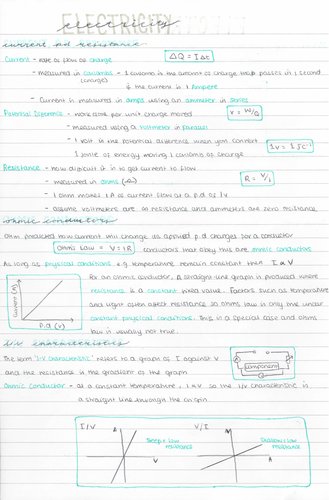 ELECTRICITY
electricity
current and resistance
Current - rate of flow of charge
ΔQ = IΔt
- measured in coulombs - 1 coulomb is the amount of charge that passes in 1 second
(charge)
if the current is 1 Ampere
- Current is measured in amps using an ammeter in series
Potential Difference - work done per unit charge moved
V = W/Q
- measured using a voltmeter in parallel
- 1 volt is the potential difference when you convert
1 joule of energy moving 1 coulomb of charge
1V = 1 JC⁻¹
Resistance - how difficult it is to get current to flow
- measured in ohms (Ω)
R = V/I
- 1 ohm makes 1A of current flow at a p.d of 1V
- assume voltmeters are ∞ resistance and ammeters are zero resistance
ohmic conductors
Ohm predicted how current will change as applied p.d changes for a conductor
Ohms Law = V = IR
conductors that obey this are ohmic conductors
As long as physical conditions e.g. temperature remain constant then I ∝ V
Current (A)
p.d. (V)
for an ohmic conductor, a straight line graph is produced where
resistance is a constant fixed value. Factors such as temperature
and light often affect resistance so ohms law is only true under
constant physical conditions. This is a special case and ohms
law is usually not true.
I/V characteristics
The term 'I-V characteristic' refers to a graph of I against V
and the resistance is the gradient of the graph
component
Ohmic Conductor - at a constant temperature, I ∝ V so the I/V characteristic is
a straight line through the origin
I/V
Steep = low
resistance
V/I
Shallow = low
resistance